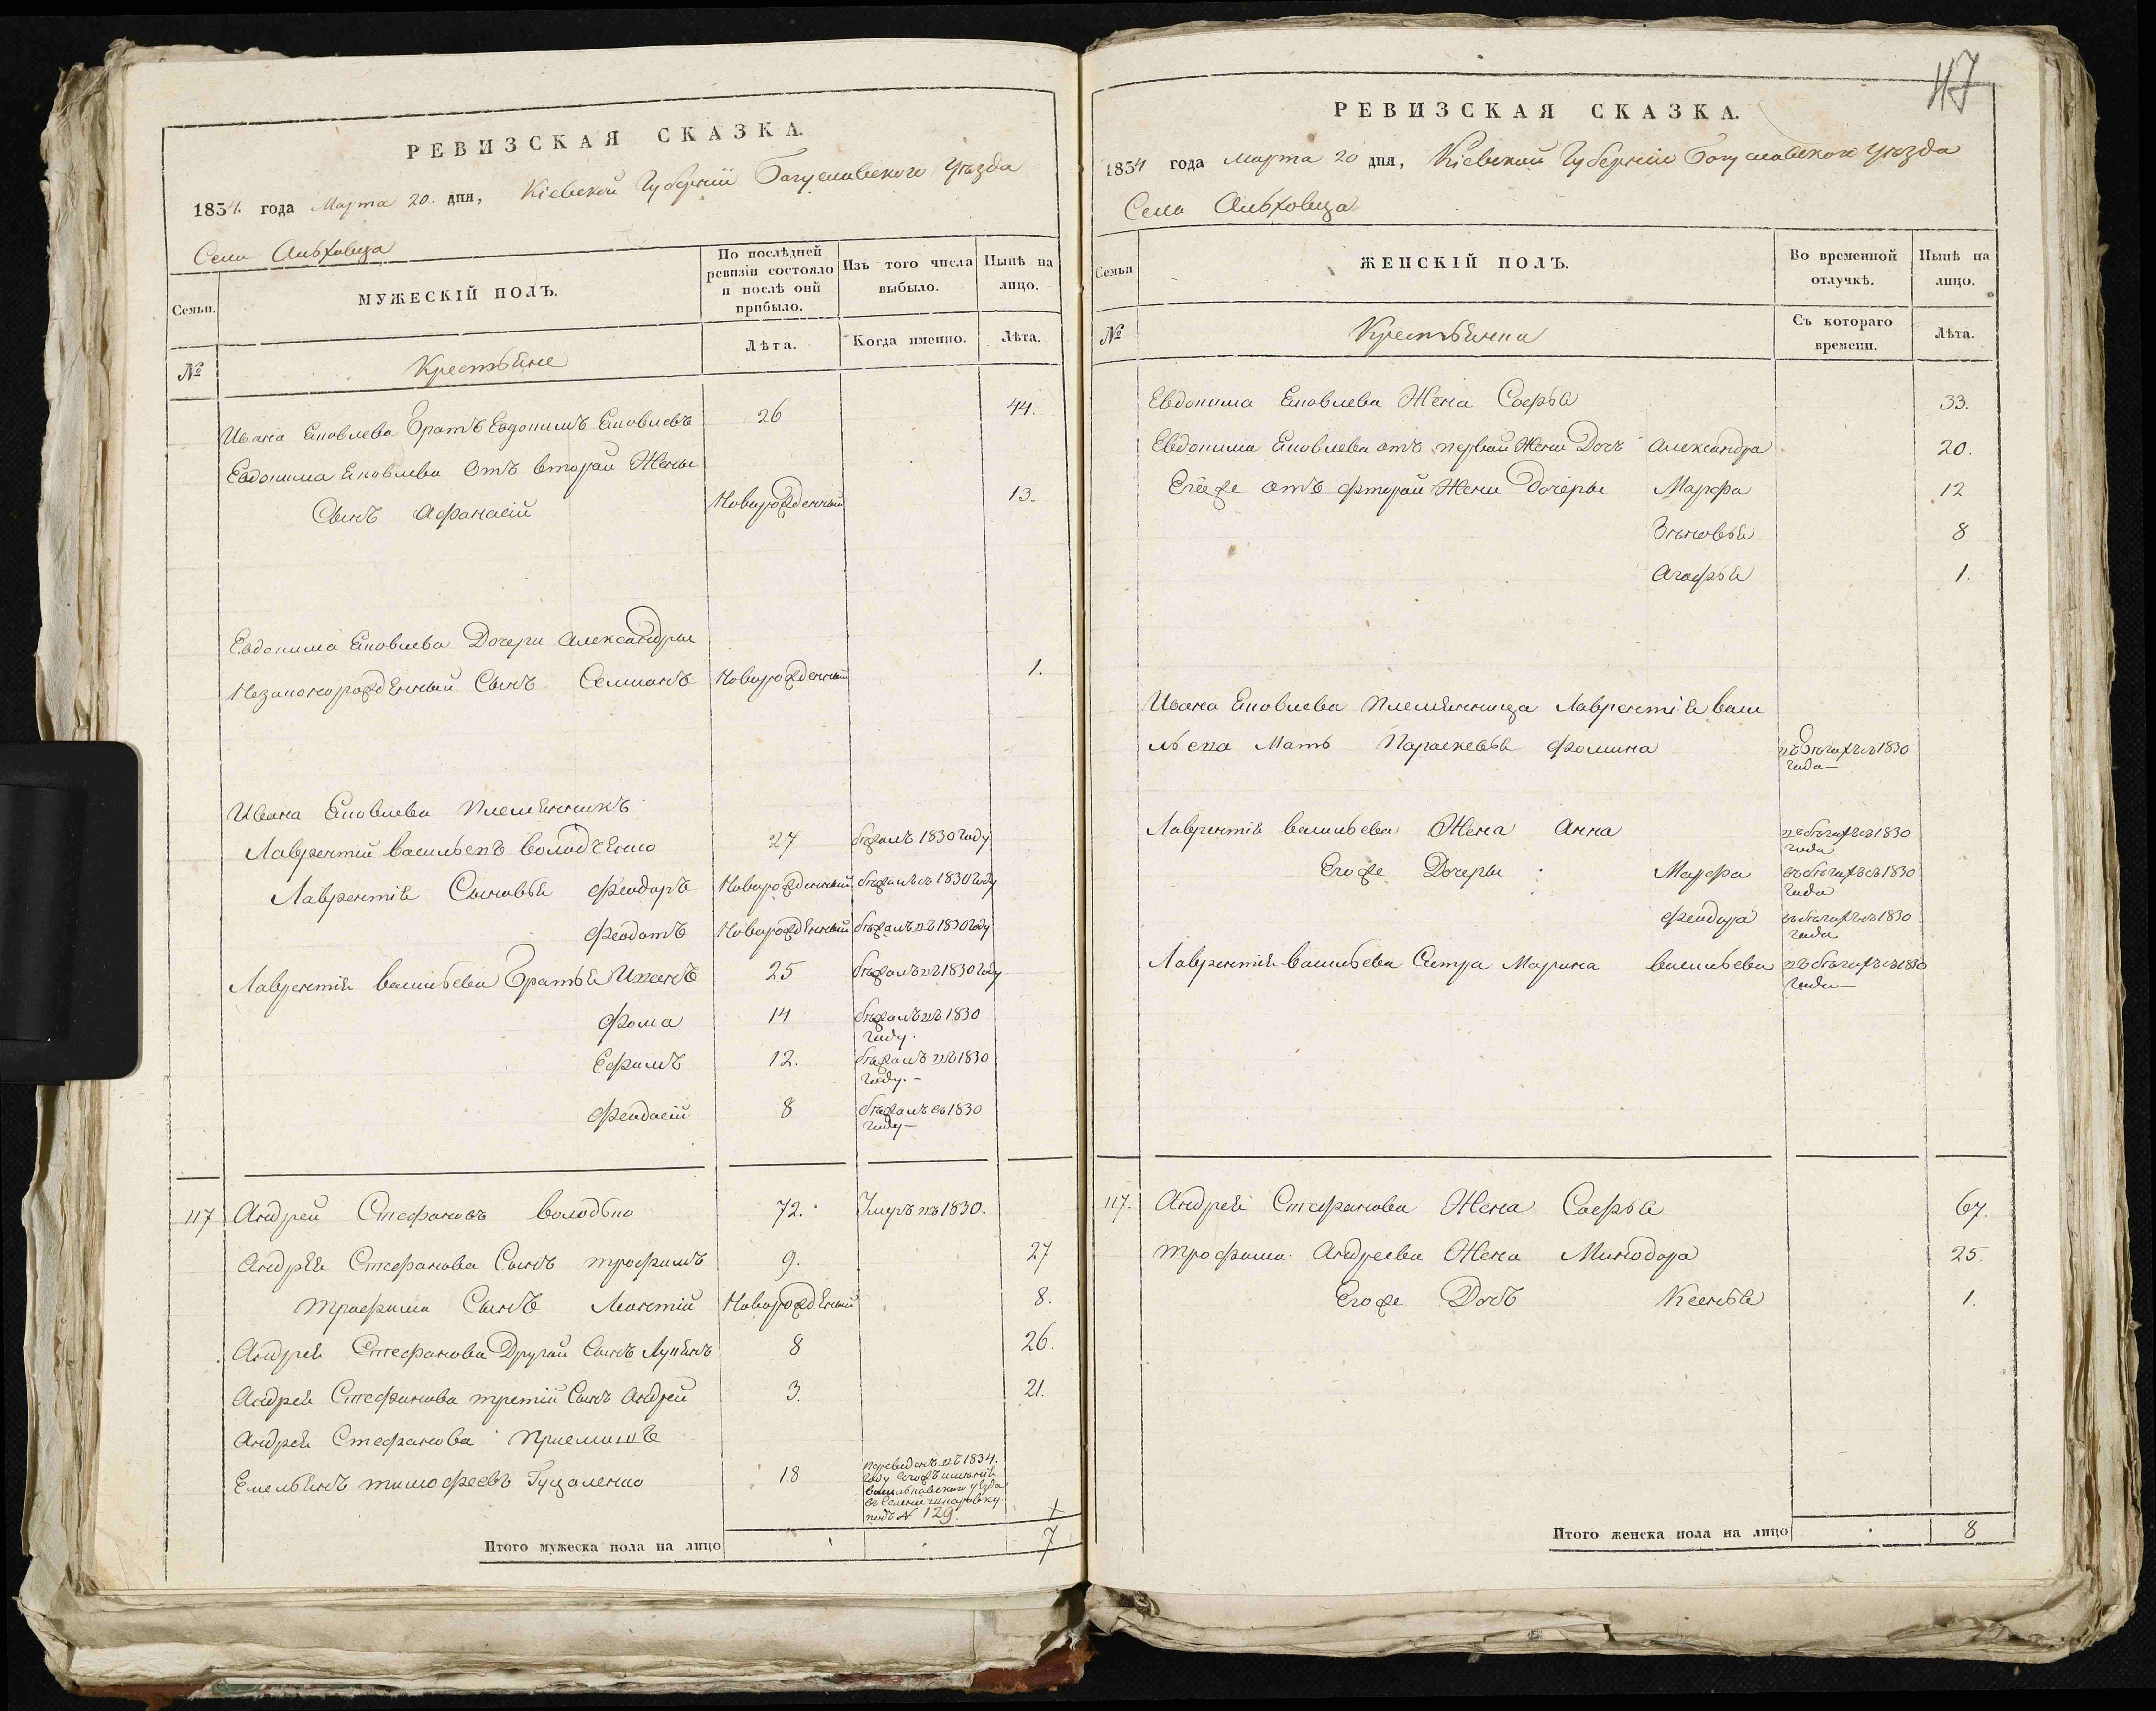 РЕВИЗСКАЯ СКАЗКА.
1834. года Марта 20. дня, Кіевской Губерніи Богуславского Уѣзда
Села Ольховца
Семьи.
МУЖЕСКІЙ ПОЛЪ.
По послѣдней ревизіи состояло и послѣ оній прибыло.
Изъ того числа выбыло.
Нынѣ на лицо.
№
Крестьяне
Лѣта.
Когда именно.
Лѣта.
Ивана Яковлева Братъ Евдокимъ Яковлевъ 26 44.
Евдокима Яковлева Отъ второй Жены
Сынъ Афанасій Новорожденный 13.
Евдокима Яковлева Дочери Александры
Незаконорожденный Сынъ Новорожденный 1.
Ивана Яковлева Племянникъ
Лаврентій Васильевъ 27 бѣжалъ 1830 году
Лаврентія Сыновья Феодоръ Новорожденный бѣжалъ въ 1830 году
Феодотъ Новорожденный бѣжалъ въ 1830 году
Лаврентія Васильева Братья Иванъ 25 бѣжалъ въ 1830 году
Фома 14 бѣжалъ въ 1830
году.
Ефимъ 12. бѣжалъ въ 1830
году.—
Феодосій 8 бѣжалъ въ 1830
году—
117 Андрей Стефановъ 72. Умеръ въ 1830.
Андрея Стефанова Сынъ Трофимъ 9. 27
Трофима Сынъ Леонтій Новорожденный 8.
Андрея Стефанова Другой Сынъ Лукянъ 8 26.
Андрея Стефанова третій Сынъ Андрей 3. 21.
Андрея Стефанова Приемышъ
Емельянъ Тимофеевъ Гуцаленко 18
переведенъ въ 1834.
году
Васильковского уѣзда
подъ № 129.
Итого мужеска пола на лицо 7
47
РЕВИЗСКАЯ СКАЗКА.
1834 года Марта 20 дня, Кіевской Губерніи Богуславского Уѣзда
Села Ольховца
Семьи
ЖЕНСКІЙ ПОЛЪ.
Во временной отлучкѣ.
Нынѣ на лицо.
№
Крестьянки
Съ котораго времени.
Лѣта.
Евдокима Яковлева Жена Софья 33.
Евдокима Яковлева отъ первой Жены Дочь Александра 20.
Егоже отъ фторой Жены Дочеры Марфа 12
Зѣновья 8
Агафья 1.
Ивана Яковлева Племянница Лаврентія Васи
льева Мать Параскевья Фомина въ бѣгахъ съ 1830
года—
Лаврентія Васильева Жена Анна въ бѣгахъ съ 1830
года
Егоже Дочеры Марфа въ бѣгахъ съ 1830
года
Феодора въ бѣгахъ съ 1830
года
Лаврентія Васильева Сестра Марина Васильева въ бѣгахъ съ 1830
года—
117. Андрея Стефанова Жена Софья 67.
Трофима Андреева Жена Минодора 25.
Егоже Дочь Ксенья 1.
Итого женска пола на лицо 8